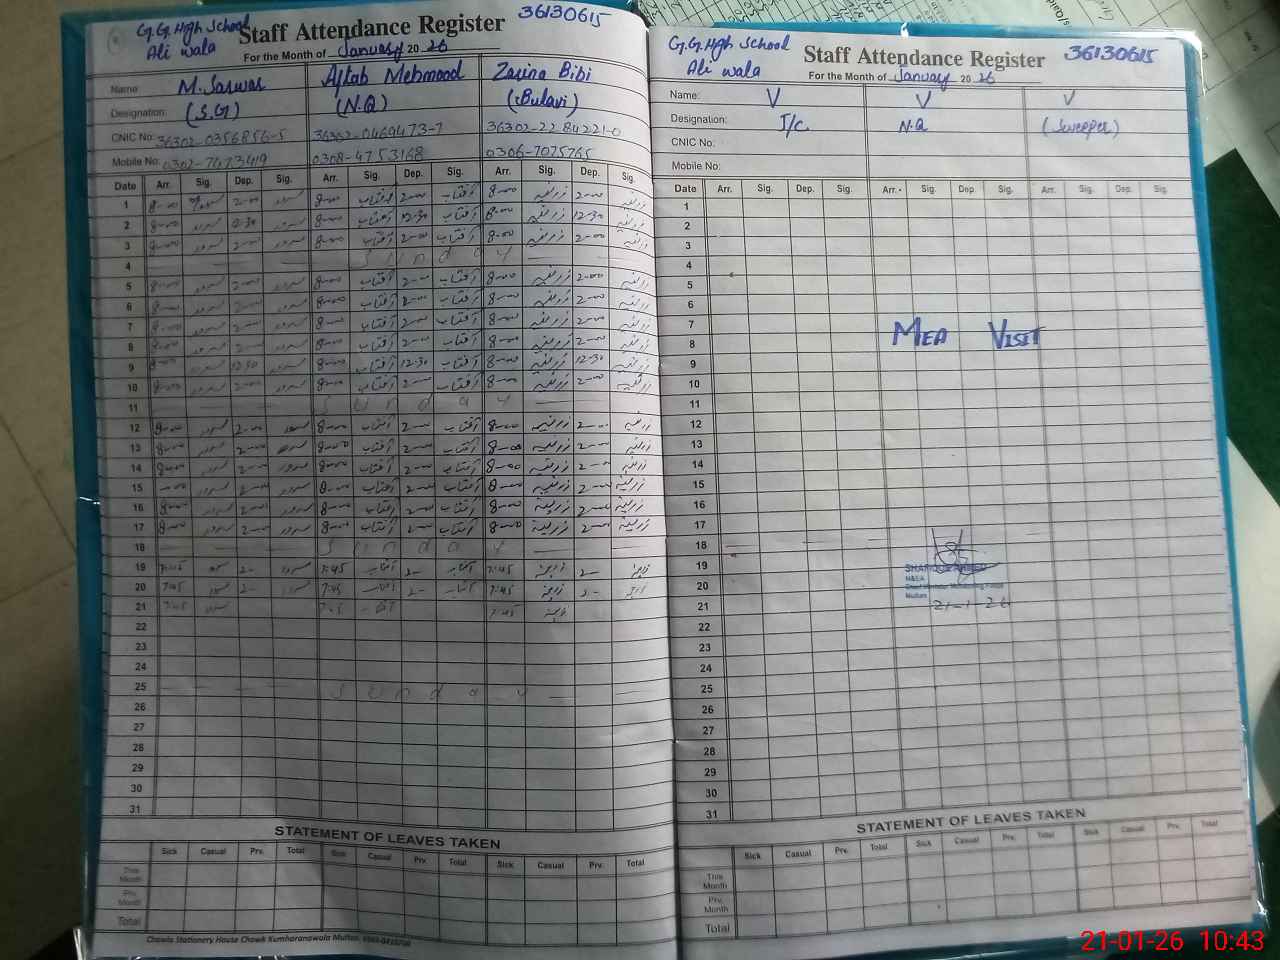 G.G. High School
Ali wala
Staff Attendance Register
36130615
For the Month of January 20 26
Name: M. Sarwar Aftab Mehmood Zarina Bibi
Designation: (S.G) (N.Q) (Bulavi)
CNIC No: 36302-0356856-5 36302-0469473-7 36302-2284221-0
Mobile No: 0302-7473419 0308-4753168 0306-7075765
Date Arr. Sig. Dep. Sig. Arr. Sig. Dep. Sig. Arr. Sig. Dep. Sig.
1 8-00 سرور 2-00 سرور 8-00 آفتاب 2-00 آفتاب 8-00 زرینہ 2-00 زرینہ
2 8-00 سرور 12-30 سرور 8-00 آفتاب 12-30 آفتاب 8-00 زرینہ 12-30 زرینہ
3 8-00 سرور 2-00 سرور 8-00 آفتاب 2-00 آفتاب 8-00 زرینہ 2-00 زرینہ
4 Sunday
5 8-00 سرور 2-00 سرور 8-00 آفتاب 2-00 آفتاب 8-00 زرینہ 2-00 زرینہ
6 8-00 سرور 2-00 سرور 8-00 آفتاب 2-00 آفتاب 8-00 زرینہ 2-00 زرینہ
7 8-00 سرور 2-00 سرور 8-00 آفتاب 2-00 آفتاب 8-00 زرینہ 2-00 زرینہ
8 8-00 سرور 2-00 سرور 8-00 آفتاب 2-00 آفتاب 8-00 زرینہ 2-00 زرینہ
9 8-00 سرور 12-30 سرور 8-00 آفتاب 12-30 آفتاب 8-00 زرینہ 12-30 زرینہ
10 8-00 سرور 2-00 سرور 8-00 آفتاب 2-00 آفتاب 8-00 زرینہ 2-00 زرینہ
11 Sunday
12 8-00 سرور 2-00 سرور 8-00 آفتاب 2-00 آفتاب 8-00 زرینہ 2-00 زرینہ
13 8-00 سرور 2-00 سرور 8-00 آفتاب 2-00 آفتاب 8-00 زرینہ 2-00 زرینہ
14 8-00 سرور 2-00 سرور 8-00 آفتاب 2-00 آفتاب 8-00 زرینہ 2-00 زرینہ
15 8-00 سرور 2-00 سرور 8-00 آفتاب 2-00 آفتاب 8-00 زرینہ 2-00 زرینہ
16 8-00 سرور 2-00 سرور 8-00 آفتاب 2-00 آفتاب 8-00 زرینہ 2-00 زرینہ
17 8-00 سرور 2-00 سرور 8-00 آفتاب 2-00 آفتاب 8-00 زرینہ 2-00 زرینہ
18 Sunday
19 7:45 سرور 2- سرور 7:45 آفتاب 2- آفتاب 7:45 زرینہ 2- زرینہ
20 7:45 سرور 2- سرور 7:45 آفتاب 2- آفتاب 7:45 زرینہ 2- زرینہ
21 7:45 سرور 7:45 آفتاب 7:45 زرینہ
22
23
24
25 Sunday
26
27
28
29
30
31
STATEMENT OF LEAVES TAKEN
Sick Casual Prv. Total Sick Casual Prv. Total Sick Casual Prv. Total
This Month
Prv. Month
Total
Chawla Stationery House Chowk Kumharanawala Multan.
G.G. High School
Ali wala
Staff Attendance Register
36130615
For the Month of January 20 26
Name: V V V
Designation: I/c. N.Q (Sweeper)
CNIC No:
Mobile No:
Date Arr. Sig. Dep. Sig. Arr. Sig. Dep. Sig. Arr. Sig. Dep. Sig.
1
2
3
4
5
6
7
8
MEA VISIT
9
10
11
12
13
14
15
16
17
18
19
20
21
Multan
21-1-26
22
23
24
25
26
27
28
29
30
31
STATEMENT OF LEAVES TAKEN
Sick Casual Prv. Total Sick Casual Prv. Total Sick Casual Prv. Total
This Month
Prv. Month
Total
21-01-26 10:43